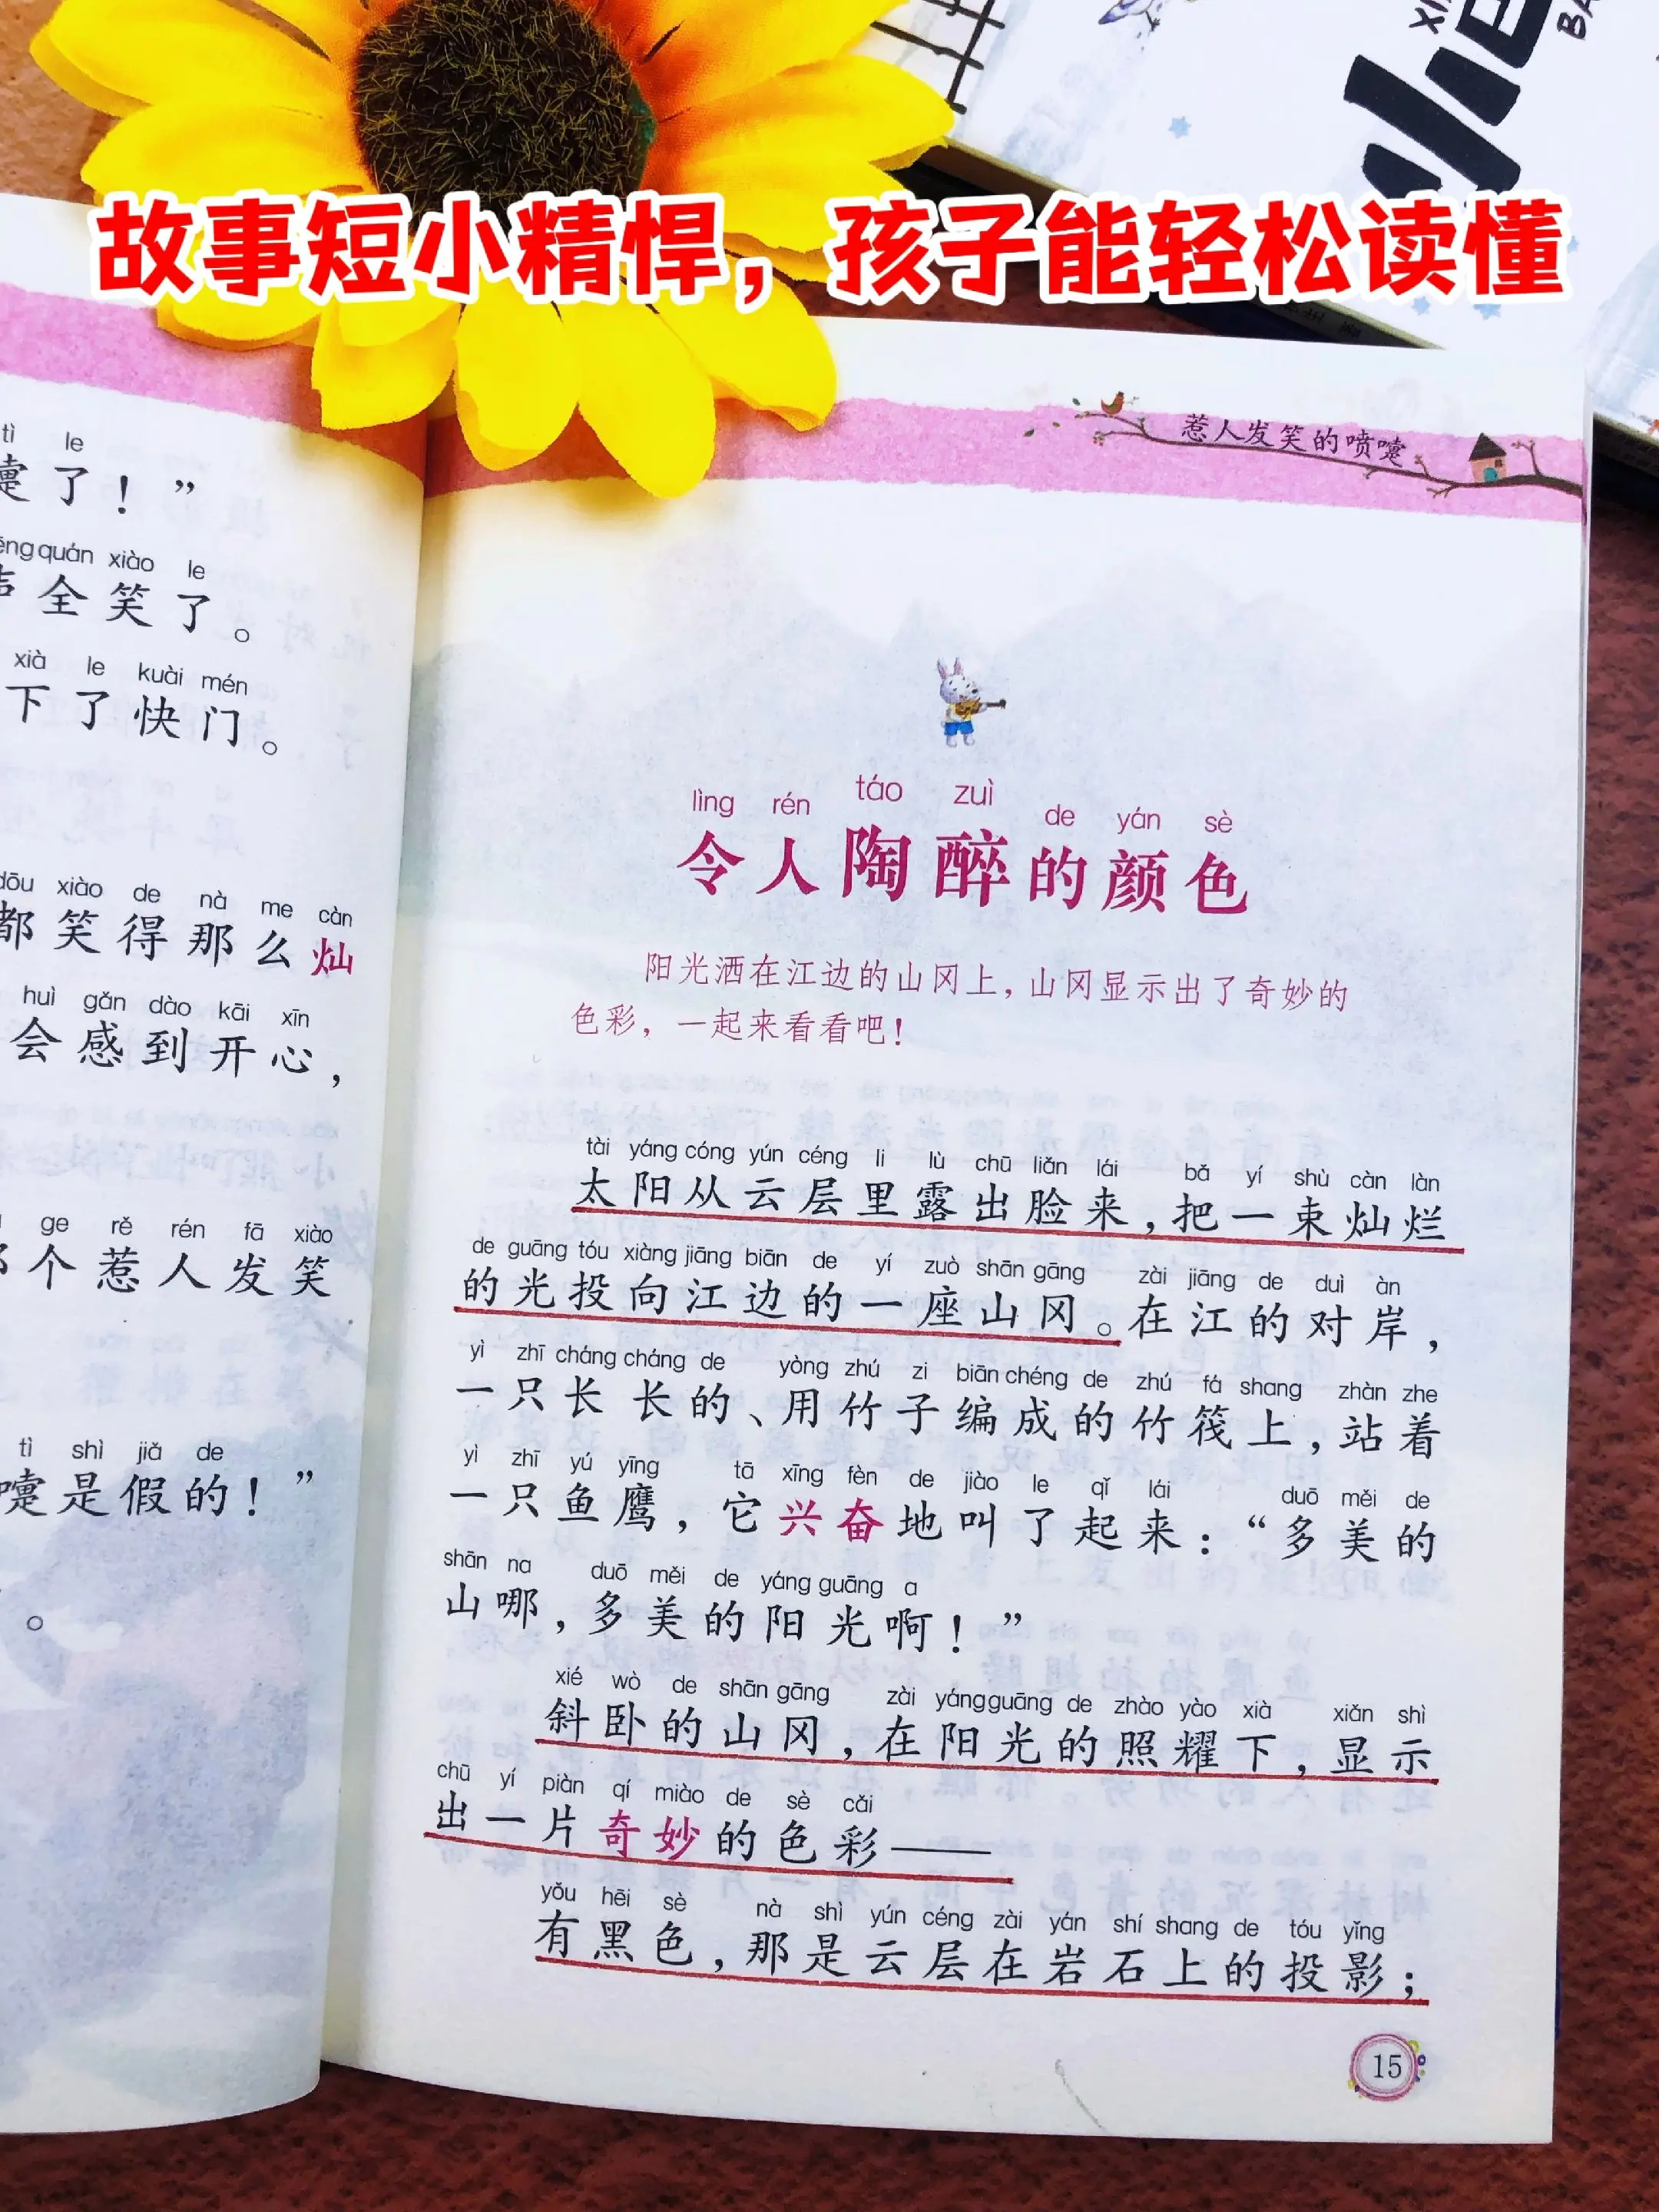 故事短小精悍，孩子能轻松读懂
tì le
了！”
quán xiào le
全笑了。
xià le kuài mén
下了快门。
dōu xiào de nà me càn
都笑得那么灿
huì gǎn dào kāi xīn
会感到开心，
ge rě rén fā xiào
个惹人发笑
tì shì jiǎ de
嚏是假的！”
。
惹人发笑的喷嚏
lìng rén táo zuì de yán sè
令人陶醉的颜色
阳光洒在江边的山冈上，山冈显示出了奇妙的
色彩，一起来看看吧！
tài yáng cóng yún céng li lù chū liǎn lái bǎ yí shù càn làn
太阳从云层里露出脸来，把一束灿烂
de guāng tóu xiàng jiāng biān de yí zuò shān gāng zài jiāng de duì àn
的光投向江边的一座山冈。在江的对岸，
yì zhī cháng cháng de yòng zhú zi biān chéng de zhú fá shang zhàn zhe
一只长长的、用竹子编成的竹筏上，站着
yì zhī yú yīng tā xīng fèn de jiào le qǐ lái duō měi de
一只鱼鹰，它兴奋地叫了起来：“多美的
shān na duō měi de yáng guāng a
山哪，多美的阳光啊！”
xié wò de shān gāng zài yáng guāng de zhào yào xià xiǎn shì
斜卧的山冈，在阳光的照耀下，显示
chū yí piàn qí miào de sè cǎi
出一片奇妙的色彩——
yǒu hēi sè nà shì yún céng zài yán shí shang de tóu yǐng
有黑色，那是云层在岩石上的投影；
15